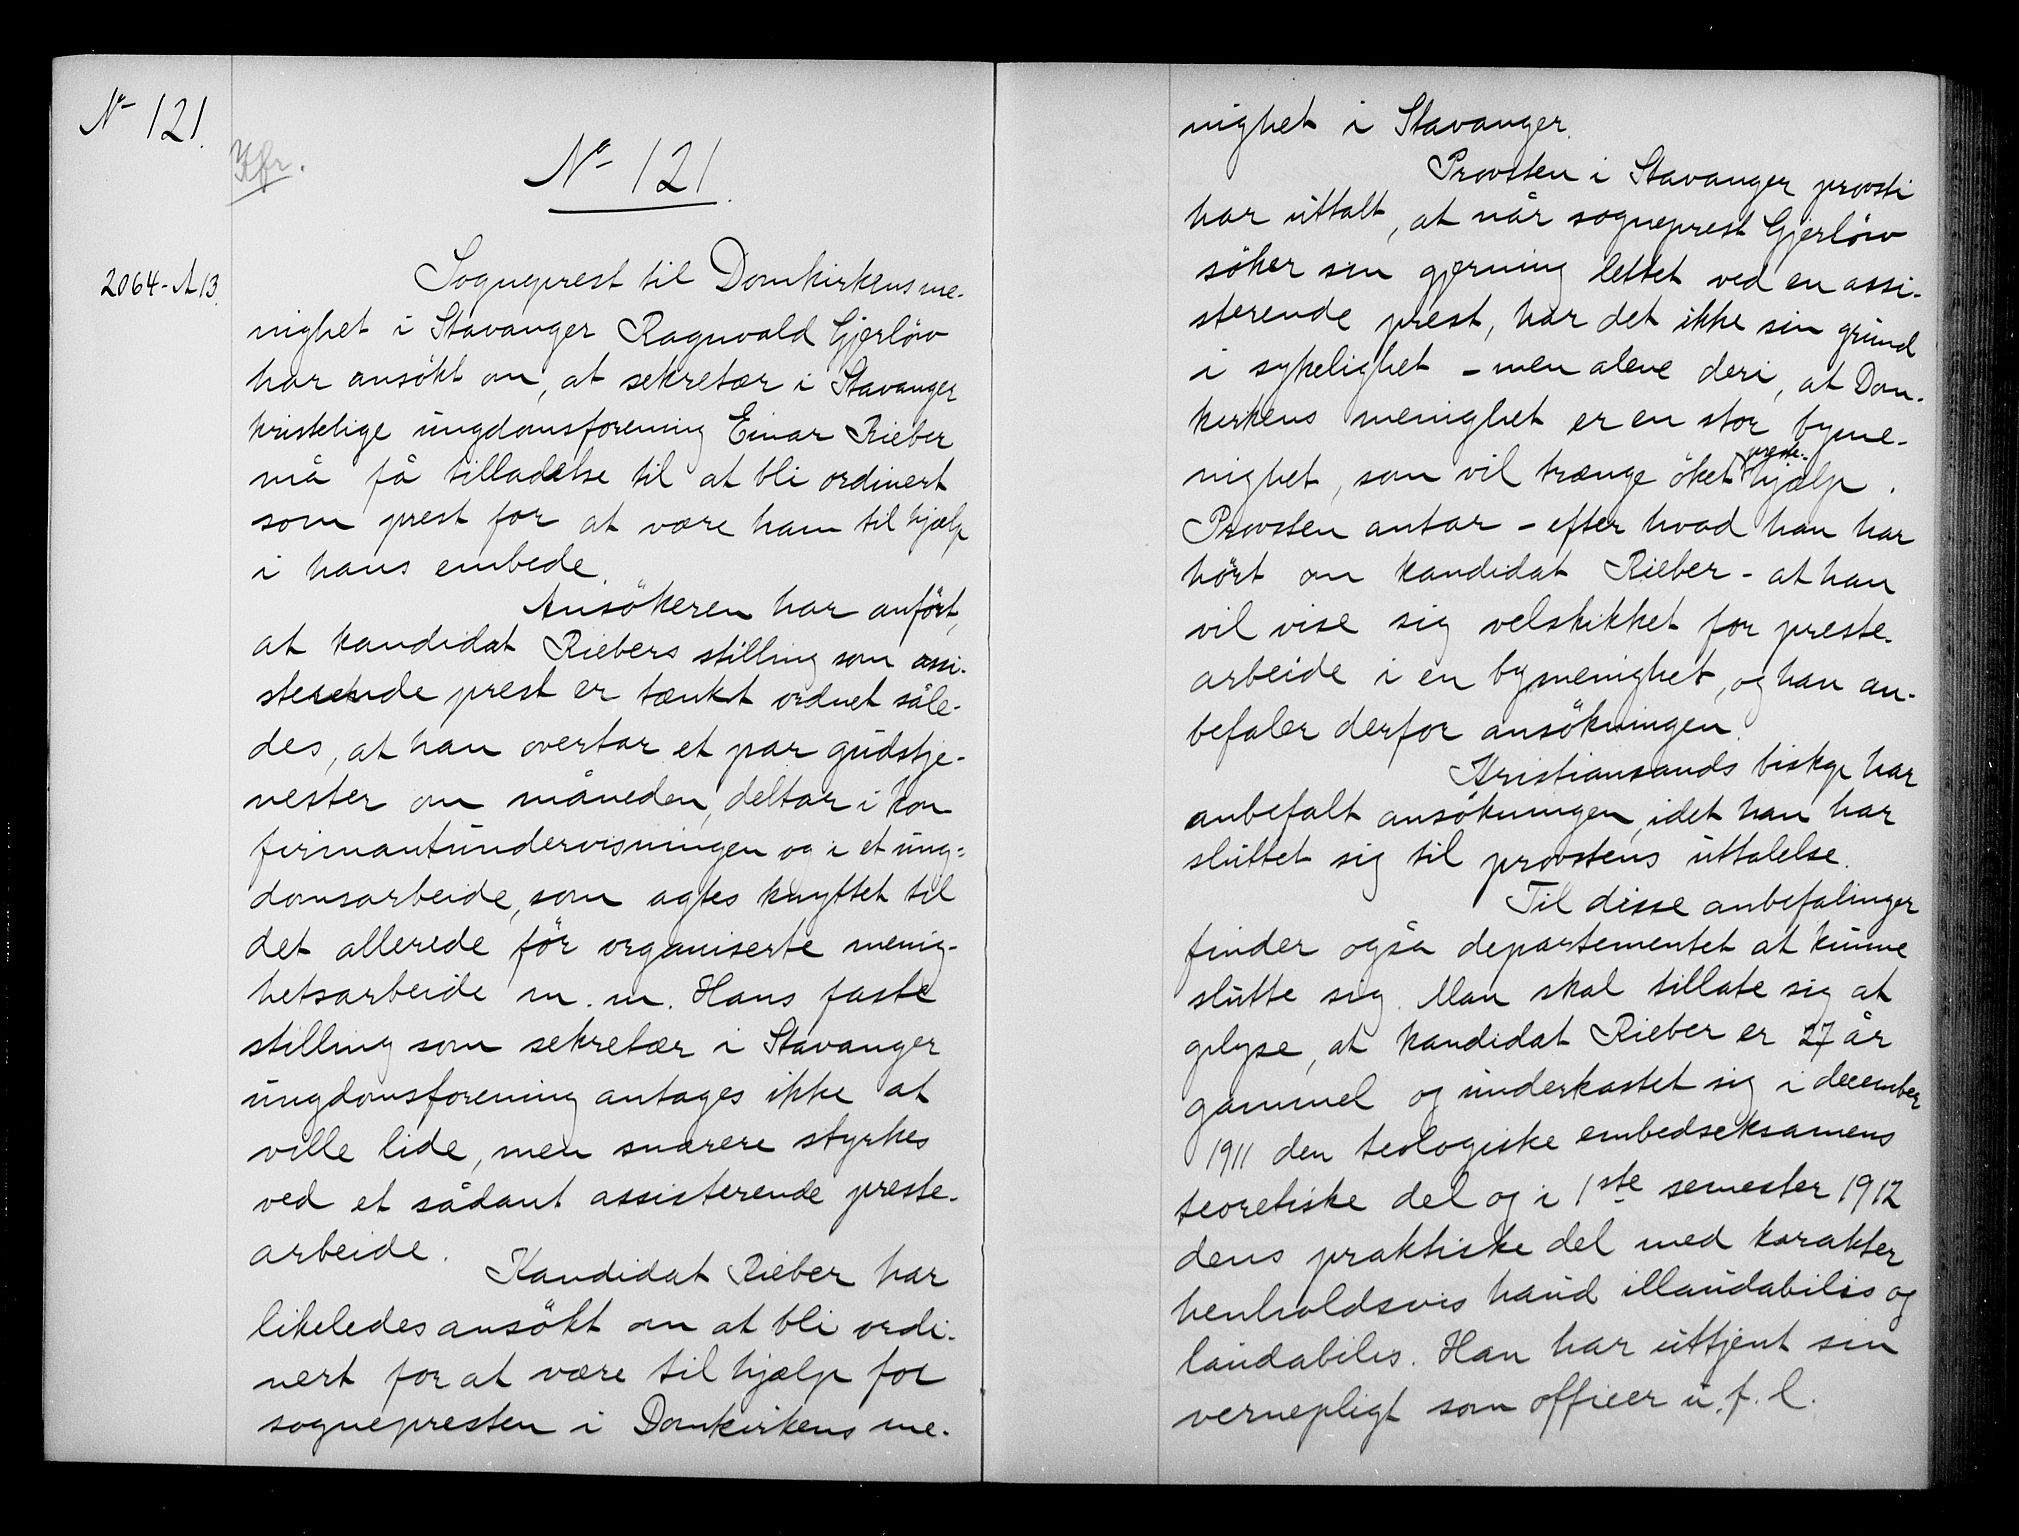 No 121.
Kfr.
No 121.
2064-A13.
Sogneprest til Domkirkens me-
nighet i Stavanger Ragnvald Gjerløw
har ansökt om, at sekretær i Stavanger
kristelige ungdomsforening Einar Rieber
må få tilladelse til at bli ordinert
som prest for at være ham til hjælp
i hans embede.
Ansökeren har anført,
at kandidat Riebers stilling som assi-
sterende prest er tænkt ordnet såle-
des, at han overtar et par gudstje-
nester om måneden, deltar i kon
firmantundervisningen og i et ung-
domsarbeide, som agtes knyttet til
det allerede før organiserte menig-
hetsarbeide m. m. Hans faste
stilling som sekretær i Stavanger
ungdomsforening antages ikke at
ville lide, men snarere styrkes
ved et sådant assisterende preste-
arbeide.
Kandidat Rieber har
likeledes ansökt om at bli ordi-
nert for at være til hjælp for
sognepresten i Domkirkens me-
nighet i Stavanger.
Provsten i Stavanger provsti
har uttalt, at når sogneprest Gjerlöw
söker sin gjerning lettet ved en assi-
sterende prest, har det ikke sin grund
i sykelighet - men alene deri, at Dom-
kirkens menighet er en stor byme-
nighet, som vil trænge öket preste-hjælp.
Provsten antar - efter hvad han har
hört om kandidat Rieber - at han
vil vise sig velskikket for preste-
arbeide i en bymenighet, og han an-
befaler derfor ansökningen.
Kristiansands biskop har
anbefalt ansökningen, idet han har
sluttet sig til provstens uttalelse.
Til disse anbefalinger
finder også departementet at kunne
slutte sig. Man skal tillate sig at
oplyse, at kandidat Rieber er 27 år
gammel og underkastet sig i december
1911 den teologiske embedseksamens
teoretiske del og i 1ste semester 1912
dens praktiske del med karakter
henholdsvis haud illaudabilis og
laudabilis. Han har uttjent sin
vernepligt som officer u. f. l.